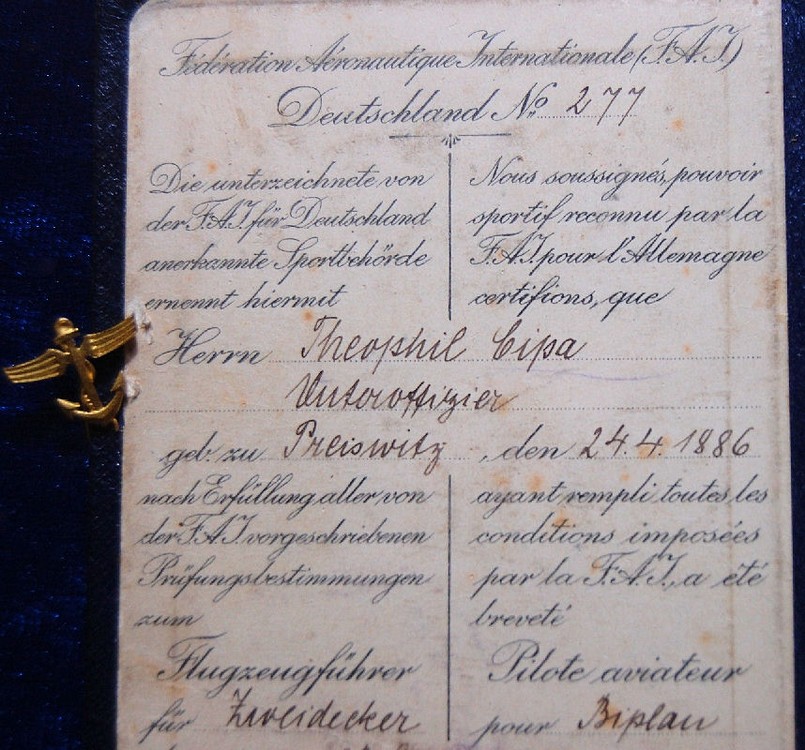 Fédération Aéronautique Internationale (F.A.I.)
Deutschland No. 277
Die unterzeichnete von
der F.A.I. für Deutschland
anerkannte Sportbehörde
ernennt hiermit
Nous soussignés, pouvoir
sportif reconnu par la
F.A.I. pour l'Allemagne
certifions, que
Herrn Theophil Cipa
Unteroffizier
geb. zu Preiswitz, den 24.4.1886
nach Erfüllung aller von
der F.A.I. vorgeschriebenen
Prüfungsbestimmungen
zum
Flugzeugführer
für Zweidecker
ayant rempli toutes les
conditions imposées
par la F.A.I., a été
breveté
Pilote aviateur
pour Biplan